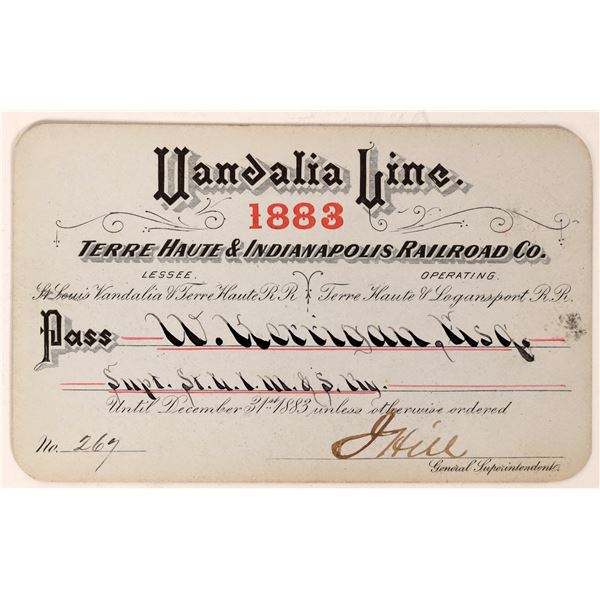 Vandalia Line.
1883
TERRE HAUTE & INDIANAPOLIS RAILROAD CO.
LESSEE. OPERATING.
St. Louis Vandalia & Terre Haute R.R. Terre Haute & Logansport R.R.
Pass W. Kerrigan, Esq.
Supt. St. L. I. M. & S. Ry.
Until December 31st 1883 unless otherwise ordered
No. 267 J Hill
General Superintendent.